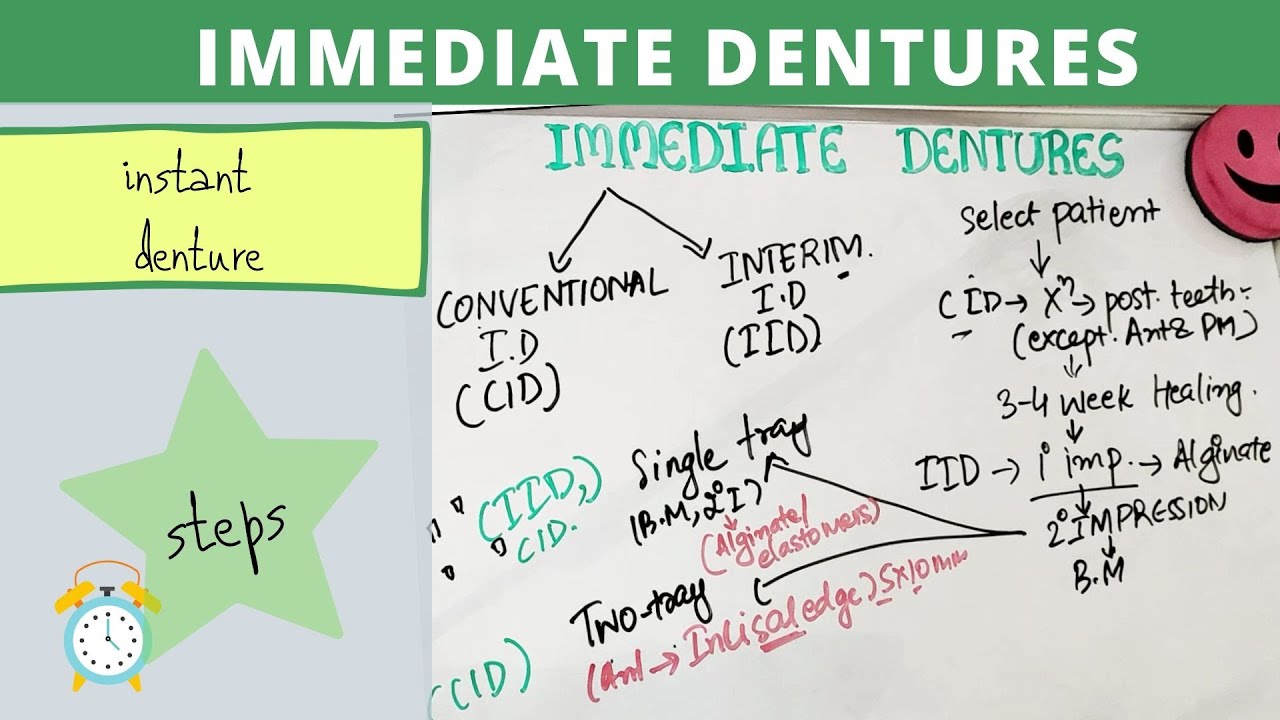 IMMEDIATE DENTURES
instant
denture
steps
IMMEDIATE DENTURES
CONVENTIONAL
I.D
(CID)
INTERIM.
I.D
(IID)
Select patient
CID → Xⁿ → post. teeth
(except. Ant & PM)
3-4 week Healing.
IID → 1° imp. → Alginate
2° IMPRESSION
B.M
(IID,)
CID.
Single tray
(B.M, 2° I)
(Alginate/
elastomers)
Two-tray
(Ant → Incisal edge) 5x10mm
(CID)